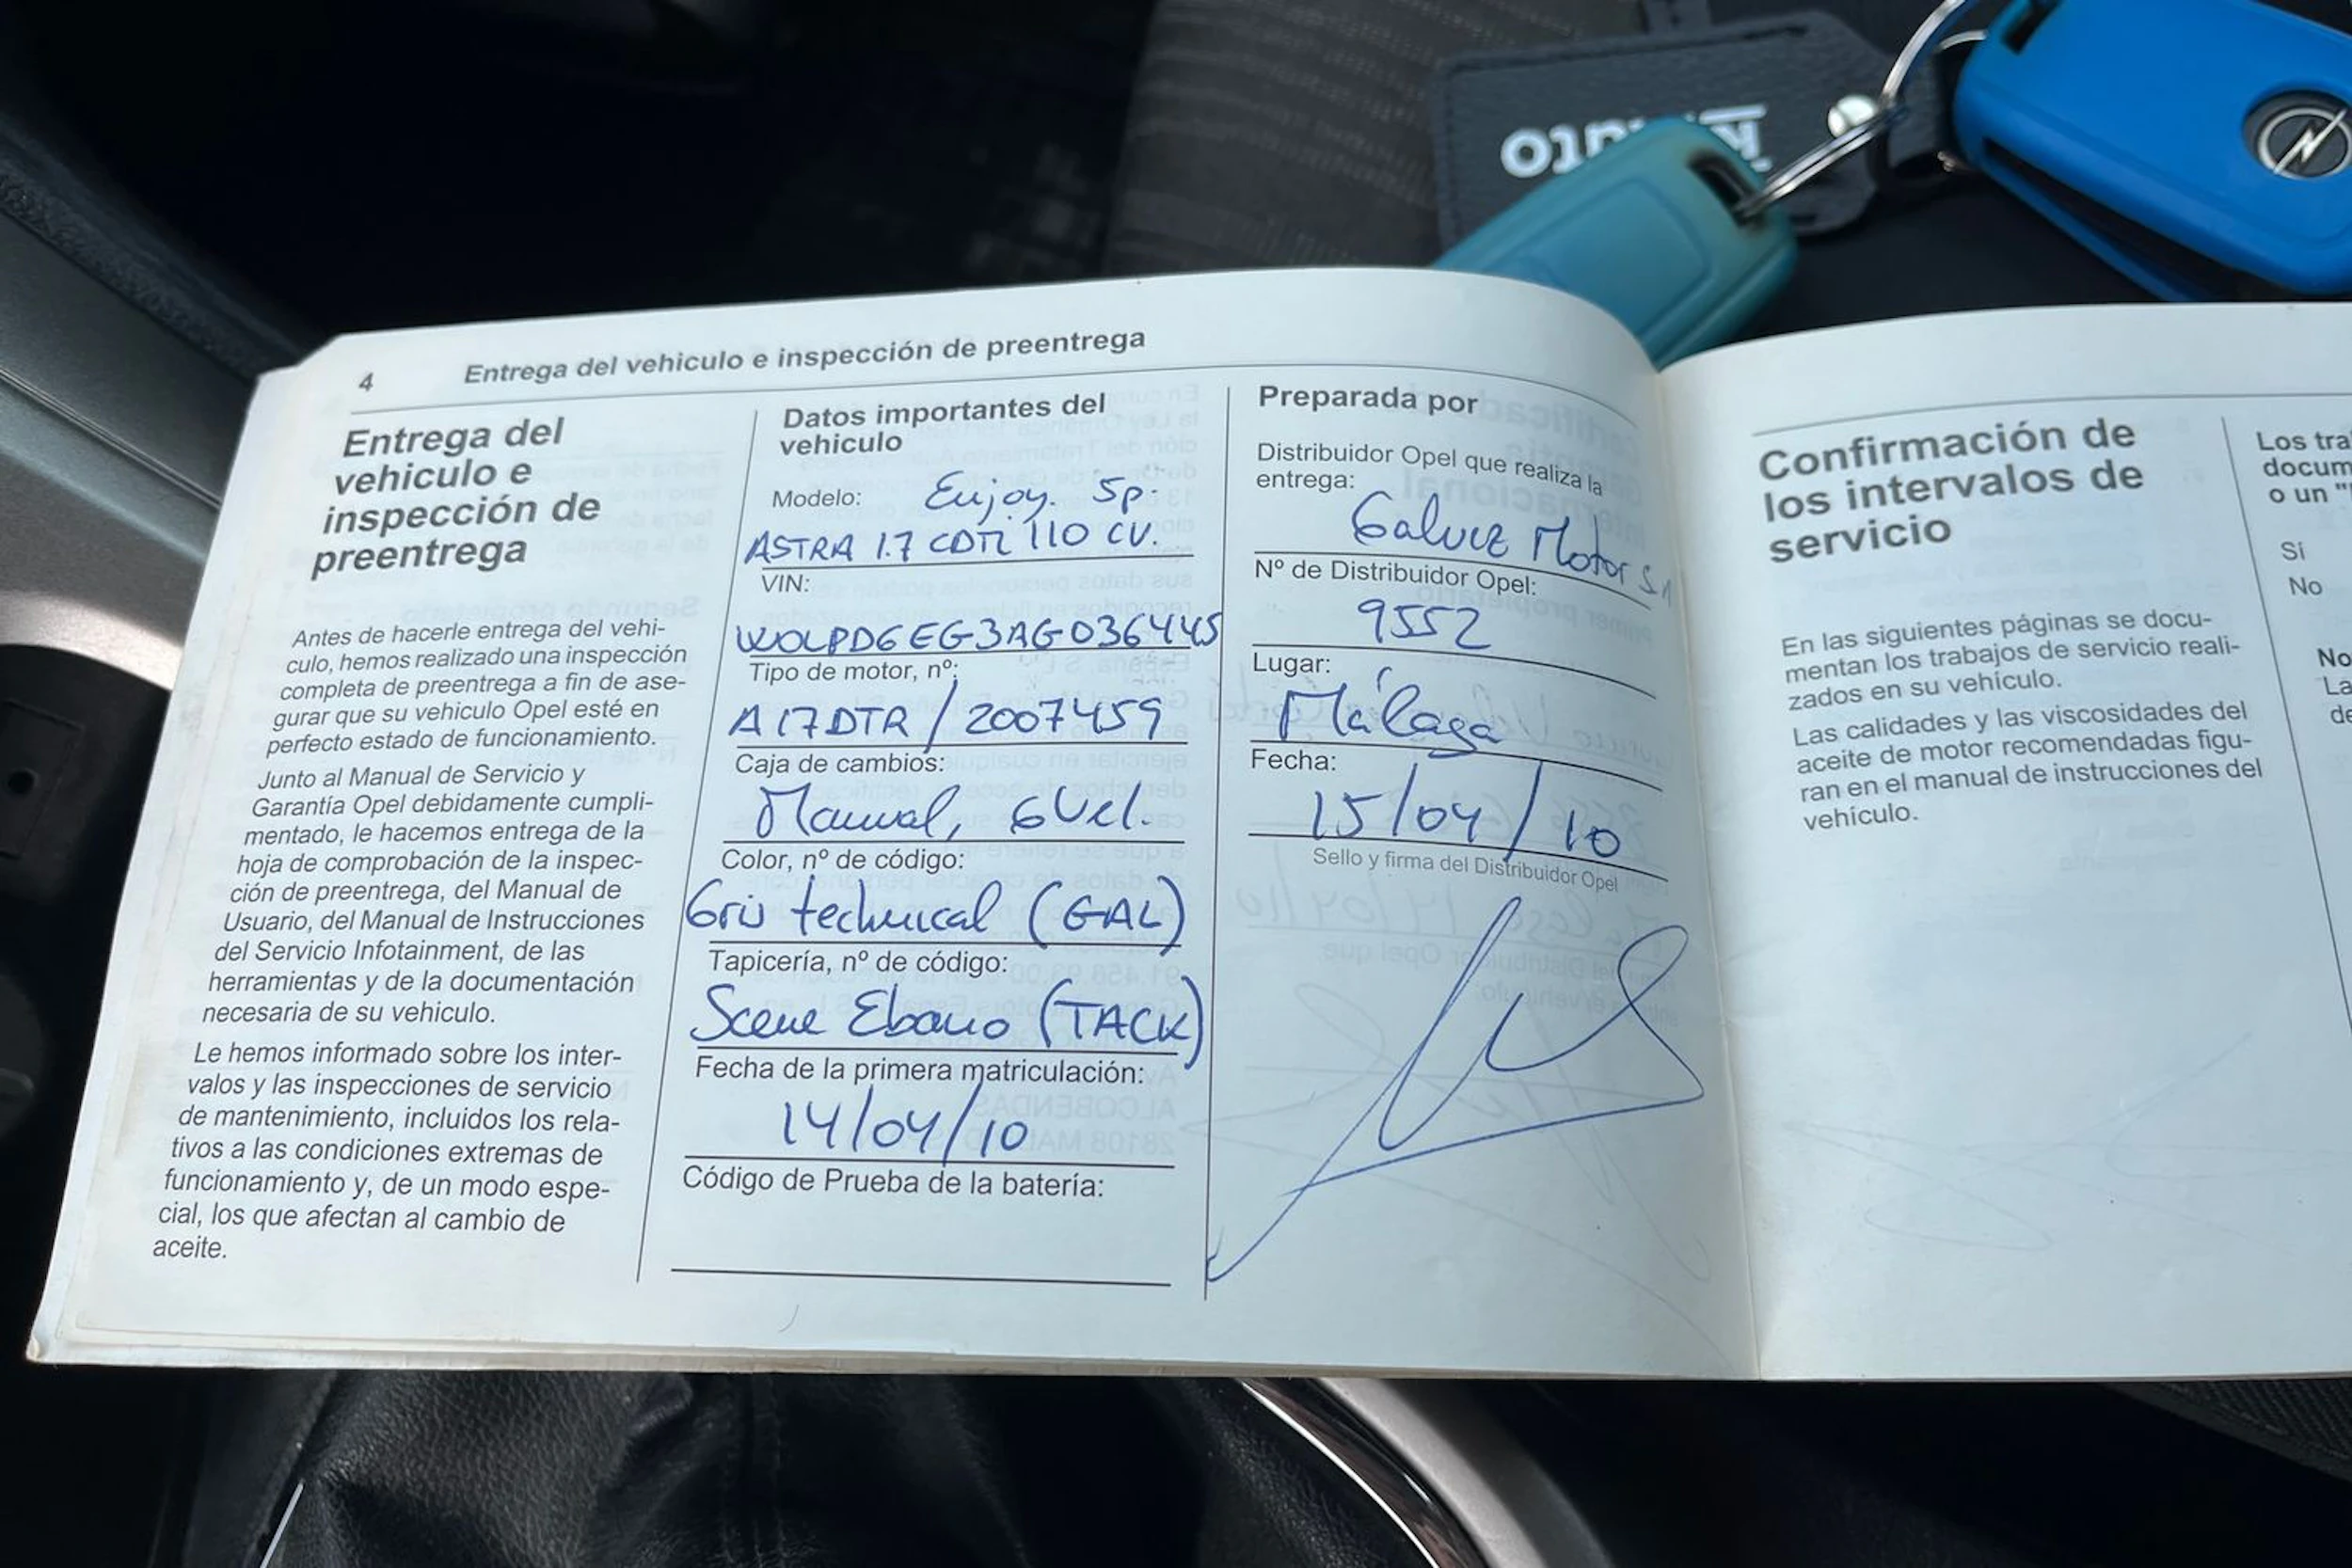 4 Entrega del vehiculo e inspección de preentrega
Entrega del
vehiculo e
inspección de
preentrega
Antes de hacerle entrega del vehi-
culo, hemos realizado una inspección
completa de preentrega a fin de ase-
gurar que su vehiculo Opel esté en
perfecto estado de funcionamiento.
Junto al Manual de Servicio y
Garantía Opel debidamente cumpli-
mentado, le hacemos entrega de la
hoja de comprobación de la inspec-
ción de preentrega, del Manual de
Usuario, del Manual de Instrucciones
del Servicio Infotainment, de las
herramientas y de la documentación
necesaria de su vehiculo.
Le hemos informado sobre los inter-
valos y las inspecciones de servicio
de mantenimiento, incluidos los rela-
tivos a las condiciones extremas de
funcionamiento y, de un modo espe-
cial, los que afectan al cambio de
aceite.
Datos importantes del
vehiculo
Modelo: Enjoy. 5p.
ASTRA 1.7 CDTI 110 CV.
VIN:
W0LPD6EG3AG036445
Tipo de motor, nº:
A17DTR / 2007459
Caja de cambios:
Manual, 6Vel.
Color, nº de código:
Gris technical (GAL)
Tapicería, nº de código:
Scene Ebano (TACK)
Fecha de la primera matriculación:
14/04/10
Código de Prueba de la batería:
Preparada por
Distribuidor Opel que realiza la
entrega:
Galvez Motor SA
Nº de Distribuidor Opel:
9552
Lugar:
Málaga
Fecha:
15/04/10
Sello y firma del Distribuidor Opel
Confirmación de
los intervalos de
servicio
En las siguientes páginas se docu-
mentan los trabajos de servicio reali-
zados en su vehículo.
Las calidades y las viscosidades del
aceite de motor recomendadas figu-
ran en el manual de instrucciones del
vehículo.
Los tra
docum
o un "
Sí
No
No
La
de